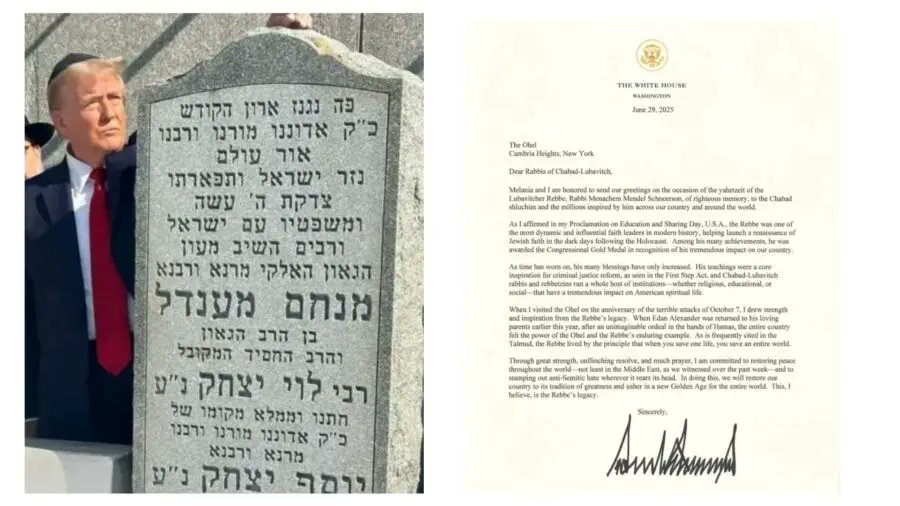 פה נגנז ארון הקודש
כ״ק אדוננו מורנו ורבנו
אור עולם
נזר ישראל ותפארתו
צדקת ה׳ עשה
ומשפטיו עם ישראל
ורבים השיב מעון
הגאון האלקי מרנא ורבנא
מנחם מענדל
בן הרב הגאון
והרב החסיד המקובל
רבי לוי יצחק נ״ע
חתנו וממלא מקומו של
כ״ק אדוננו מורנו ורבנו
מרנא ורבנא
יוסף יצחק נ״ע
THE WHITE HOUSE
WASHINGTON
June 29, 2025
The Ohel
Cambria Heights, New York
Dear Rabbis of Chabad-Lubavitch,
Melania and I are honored to send our greetings on the occasion of the yahrtzeit of the
Lubavitcher Rebbe, Rabbi Menachem Mendel Schneerson, of righteous memory, to the Chabad
shluchim and the millions inspired by him across our country and around the world.
As I affirmed in my Proclamation on Education and Sharing Day, U.S.A., the Rebbe was one of
the most dynamic and influential faith leaders in modern history, helping launch a renaissance of
Jewish faith in the dark days following the Holocaust. Among his many achievements, he was
awarded the Congressional Gold Medal in recognition of his tremendous impact on our country.
As time has worn on, his many blessings have only increased. His teachings were a core
inspiration for criminal justice reform, as seen in the First Step Act, and Chabad-Lubavitch
rabbis and rebbetzins run a whole host of institutions—whether religious, educational, or
social—that have a tremendous impact on American spiritual life.
When I visited the Ohel on the anniversary of the terrible attacks of October 7, I drew strength
and inspiration from the Rebbe's legacy. When Edan Alexander was returned to his loving
parents earlier this year, after an unimaginable ordeal in the hands of Hamas, the entire country
felt the power of the Ohel and the Rebbe's enduring example. As is frequently cited in the
Talmud, the Rebbe lived by the principle that when you save one life, you save an entire world.
Through great strength, unflinching resolve, and much prayer, I am committed to restoring peace
throughout the world—not least in the Middle East, as we witnessed over the past week—and to
stamping out anti-Semitic hate wherever it rears its head. In doing this, we will restore our
country to its tradition of greatness and usher in a new Golden Age for the entire world. This, I
believe, is the Rebbe's legacy.
Sincerely,